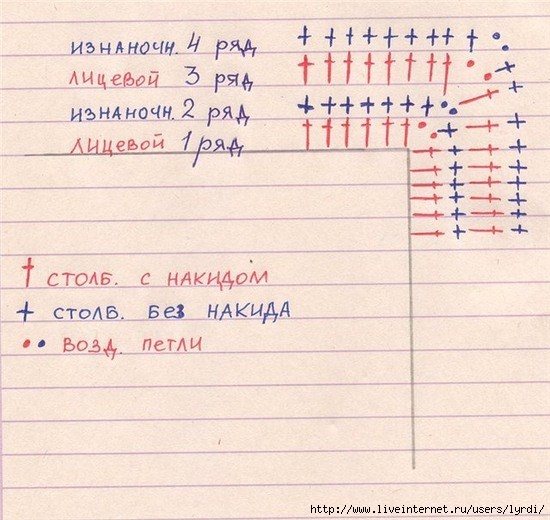 изнаночн. 4 ряд
лицевой 3 ряд
изнаночн. 2 ряд
лицевой 1 ряд
столб. с накидом
столб. без накида
возд. петли
http://www.liveinternet.ru/users/lyrdi/